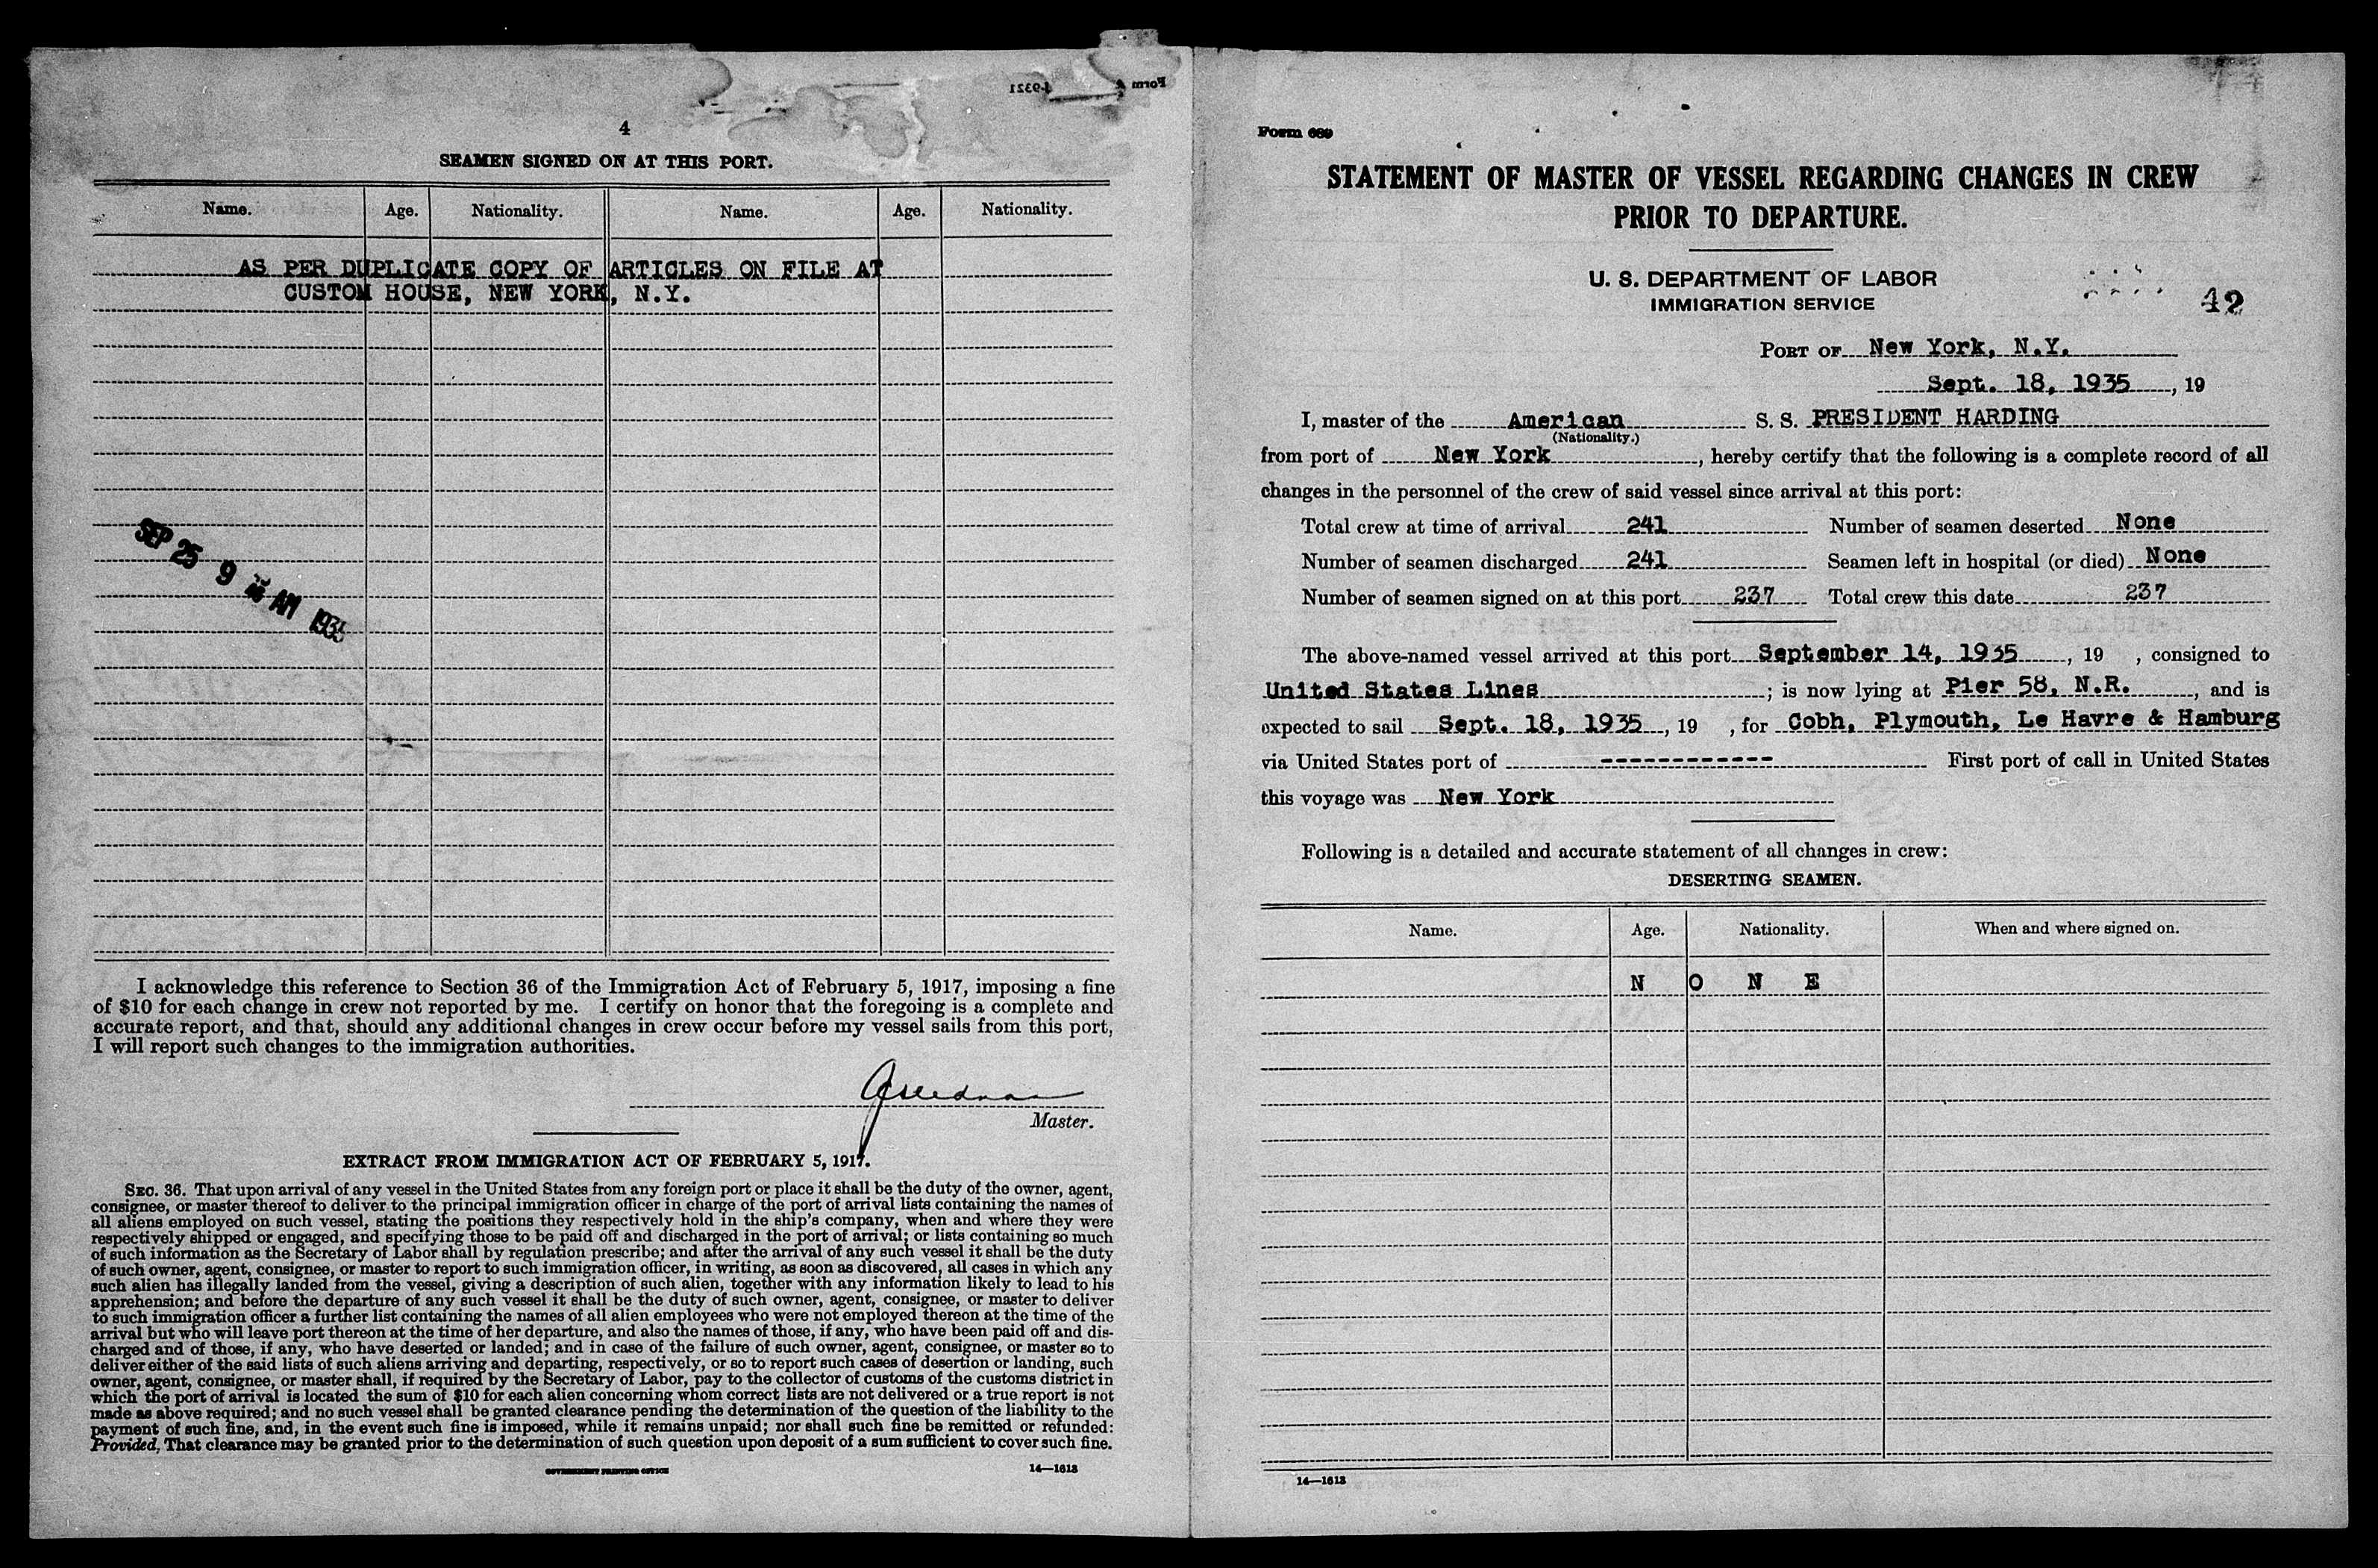 4
SEAMEN SIGNED ON AT THIS PORT.
Name. Age. Nationality. Name. Age. Nationality.
AS PER DUPLICATE COPY OF ARTICLES ON FILE AT
CUSTOM HOUSE, NEW YORK, N.Y.
SEP 25 9 AM 1935
I acknowledge this reference to Section 36 of the Immigration Act of February 5, 1917, imposing a fine
of $10 for each change in crew not reported by me. I certify on honor that the foregoing is a complete and
accurate report, and that, should any additional changes in crew occur before my vessel sails from this port,
I will report such changes to the immigration authorities.
Master.
EXTRACT FROM IMMIGRATION ACT OF FEBRUARY 5, 1917.
SEC. 36. That upon arrival of any vessel in the United States from any foreign port or place it shall be the duty of the owner, agent,
consignee, or master thereof to deliver to the principal immigration officer in charge of the port of arrival lists containing the names of
all aliens employed on such vessel, stating the positions they respectively hold in the ship's company, when and where they were
respectively shipped or engaged, and specifying those to be paid off and discharged in the port of arrival; or lists containing so much
of such information as the Secretary of Labor shall by regulation prescribe; and after the arrival of any such vessel it shall be the duty
of such owner, agent, consignee, or master to report to such immigration officer, in writing, as soon as discovered, all cases in which any
such alien has illegally landed from the vessel, giving a description of such alien, together with any information likely to lead to his
apprehension; and before the departure of any such vessel it shall be the duty of such owner, agent, consignee, or master to deliver
to such immigration officer a further list containing the names of all alien employees who were not employed thereon at the time of the
arrival but who will leave port thereon at the time of her departure, and also the names of those, if any, who have been paid off and dis-
charged and of those, if any, who have deserted or landed; and in case of the failure of such owner, agent, consignee, or master so to
deliver either of the said lists of such aliens arriving and departing, respectively, or so to report such cases of desertion or landing, such
owner, agent, consignee, or master shall, if required by the Secretary of Labor, pay to the collector of customs of the customs district in
which the port of arrival is located the sum of $10 for each alien concerning whom correct lists are not delivered or a true report is not
made as above required; and no such vessel shall be granted clearance pending the determination of the question of the liability to the
payment of such fine, and, in the event such fine is imposed, while it remains unpaid; nor shall such fine be remitted or refunded:
Provided, That clearance may be granted prior to the determination of such question upon deposit of a sum sufficient to cover such fine.
GOVERNMENT PRINTING OFFICE 14—1613
Form 689
STATEMENT OF MASTER OF VESSEL REGARDING CHANGES IN CREW
PRIOR TO DEPARTURE.
U. S. DEPARTMENT OF LABOR
IMMIGRATION SERVICE
42
PORT OF New York, N.Y.
Sept. 18, 1935, 19
I, master of the American S. S. PRESIDENT HARDING
(Nationality.)
from port of New York, hereby certify that the following is a complete record of all
changes in the personnel of the crew of said vessel since arrival at this port:
Total crew at time of arrival 241 Number of seamen deserted None
Number of seamen discharged 241 Seamen left in hospital (or died) None
Number of seamen signed on at this port 237 Total crew this date 237
The above-named vessel arrived at this port September 14, 1935, 19 , consigned to
United States Lines; is now lying at Pier 58, N.R., and is
expected to sail Sept. 18, 1935, 19 , for Cobh, Plymouth, Le Havre & Hamburg
via United States port of ------------ First port of call in United States
this voyage was New York
Following is a detailed and accurate statement of all changes in crew:
DESERTING SEAMEN.
Name. Age. Nationality. When and where signed on.
N O N E
14—1613